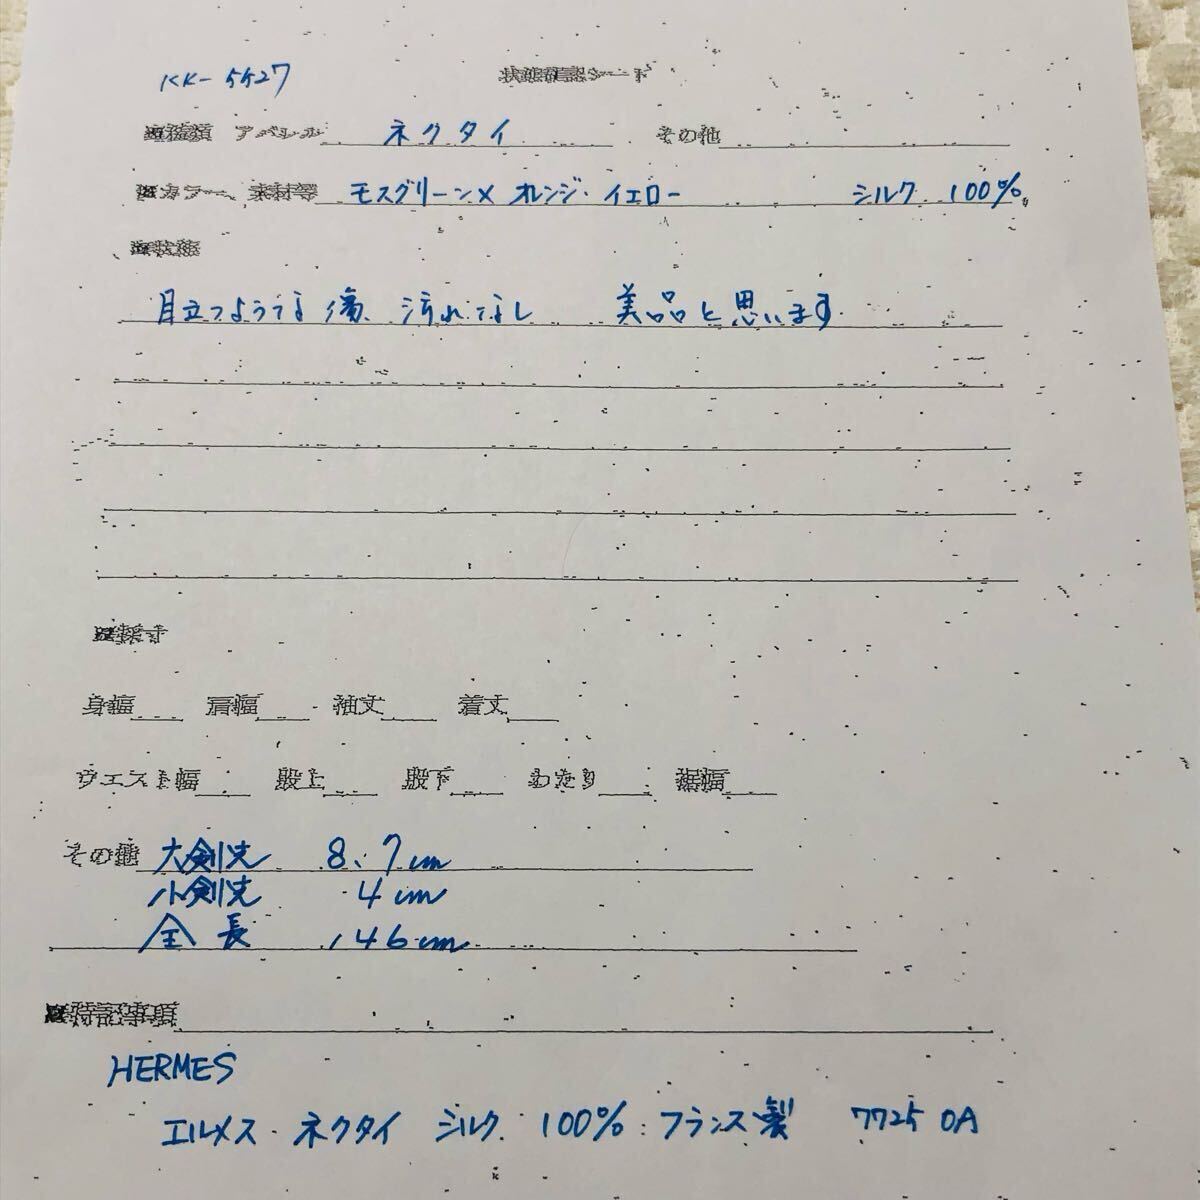 KK-5527
状態確認シート
■種類 アパレル ネクタイ その他
■カラー、素材等 モスグリーン×オレンジ・イエロー シルク 100%
■状態
目立つような傷、汚れなし 美品と思います
■採寸
身幅 肩幅 袖丈 着丈
ウエスト幅 股上 股下 わたり 裾幅
その他 大剣先 8.7cm
小剣先 4cm
全長 146cm
■特記事項
HERMES
エルメス・ネクタイ シルク 100% フランス製 7725 OA